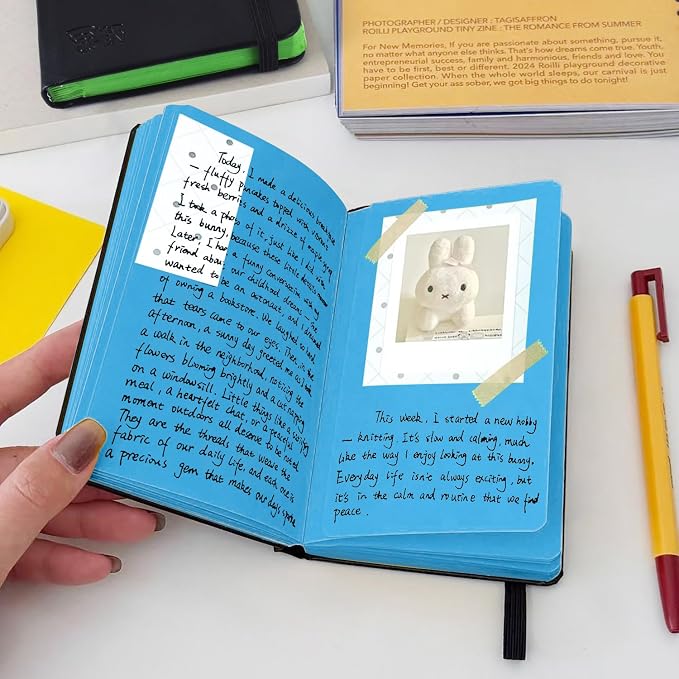 PHOTOGRAPHER / DESIGNER : TAGISAFFRON
ROILLI PLAYGROUND TINY ZINE : THE ROMANCE FROM SUMMER
For New Memories, If you are passionate about something, pursue it,
no matter what anyone else thinks. That's how dreams come true. Youth,
entrepreneurial success, family and harmonious, friends and love. You
have to be first, best or different. 2024 Roilli playground decorative
paper collection. When the whole world sleeps, our carnival is just
beginning! Get your ass sober, we got big things to do tonight!
Today, I made a delicious breakfast
— fluffy pancakes topped with vibrant
fresh berries and a drizzle of maple syrup
I took a photo of it, just like I did with
this bunny, because these little details
Later, I had a funny conversation with my
friend about our childhood dreams — he
wanted to be an astronaut, and I dreamed
of owning a bookstore. We laughed so hard
that tears came to our eyes. Then, in the
afternoon, a sunny day greeted me as I took
a walk in the neighborhood, noticing the
flowers blooming brightly and a cat napping
on a windowsill. Little things like a
meal, a heartfelt chat, or a peaceful
moment outdoors all deserve to be noted
They are the threads that weave the
fabric of our daily life, and each one is
a precious gem that makes our days
This week, I started a new hobby
— knitting. It's slow and calming, much
like the way I enjoy looking at this bunny.
Everyday life isn't always exciting, but
it's in the calm and routine that we find
peace.